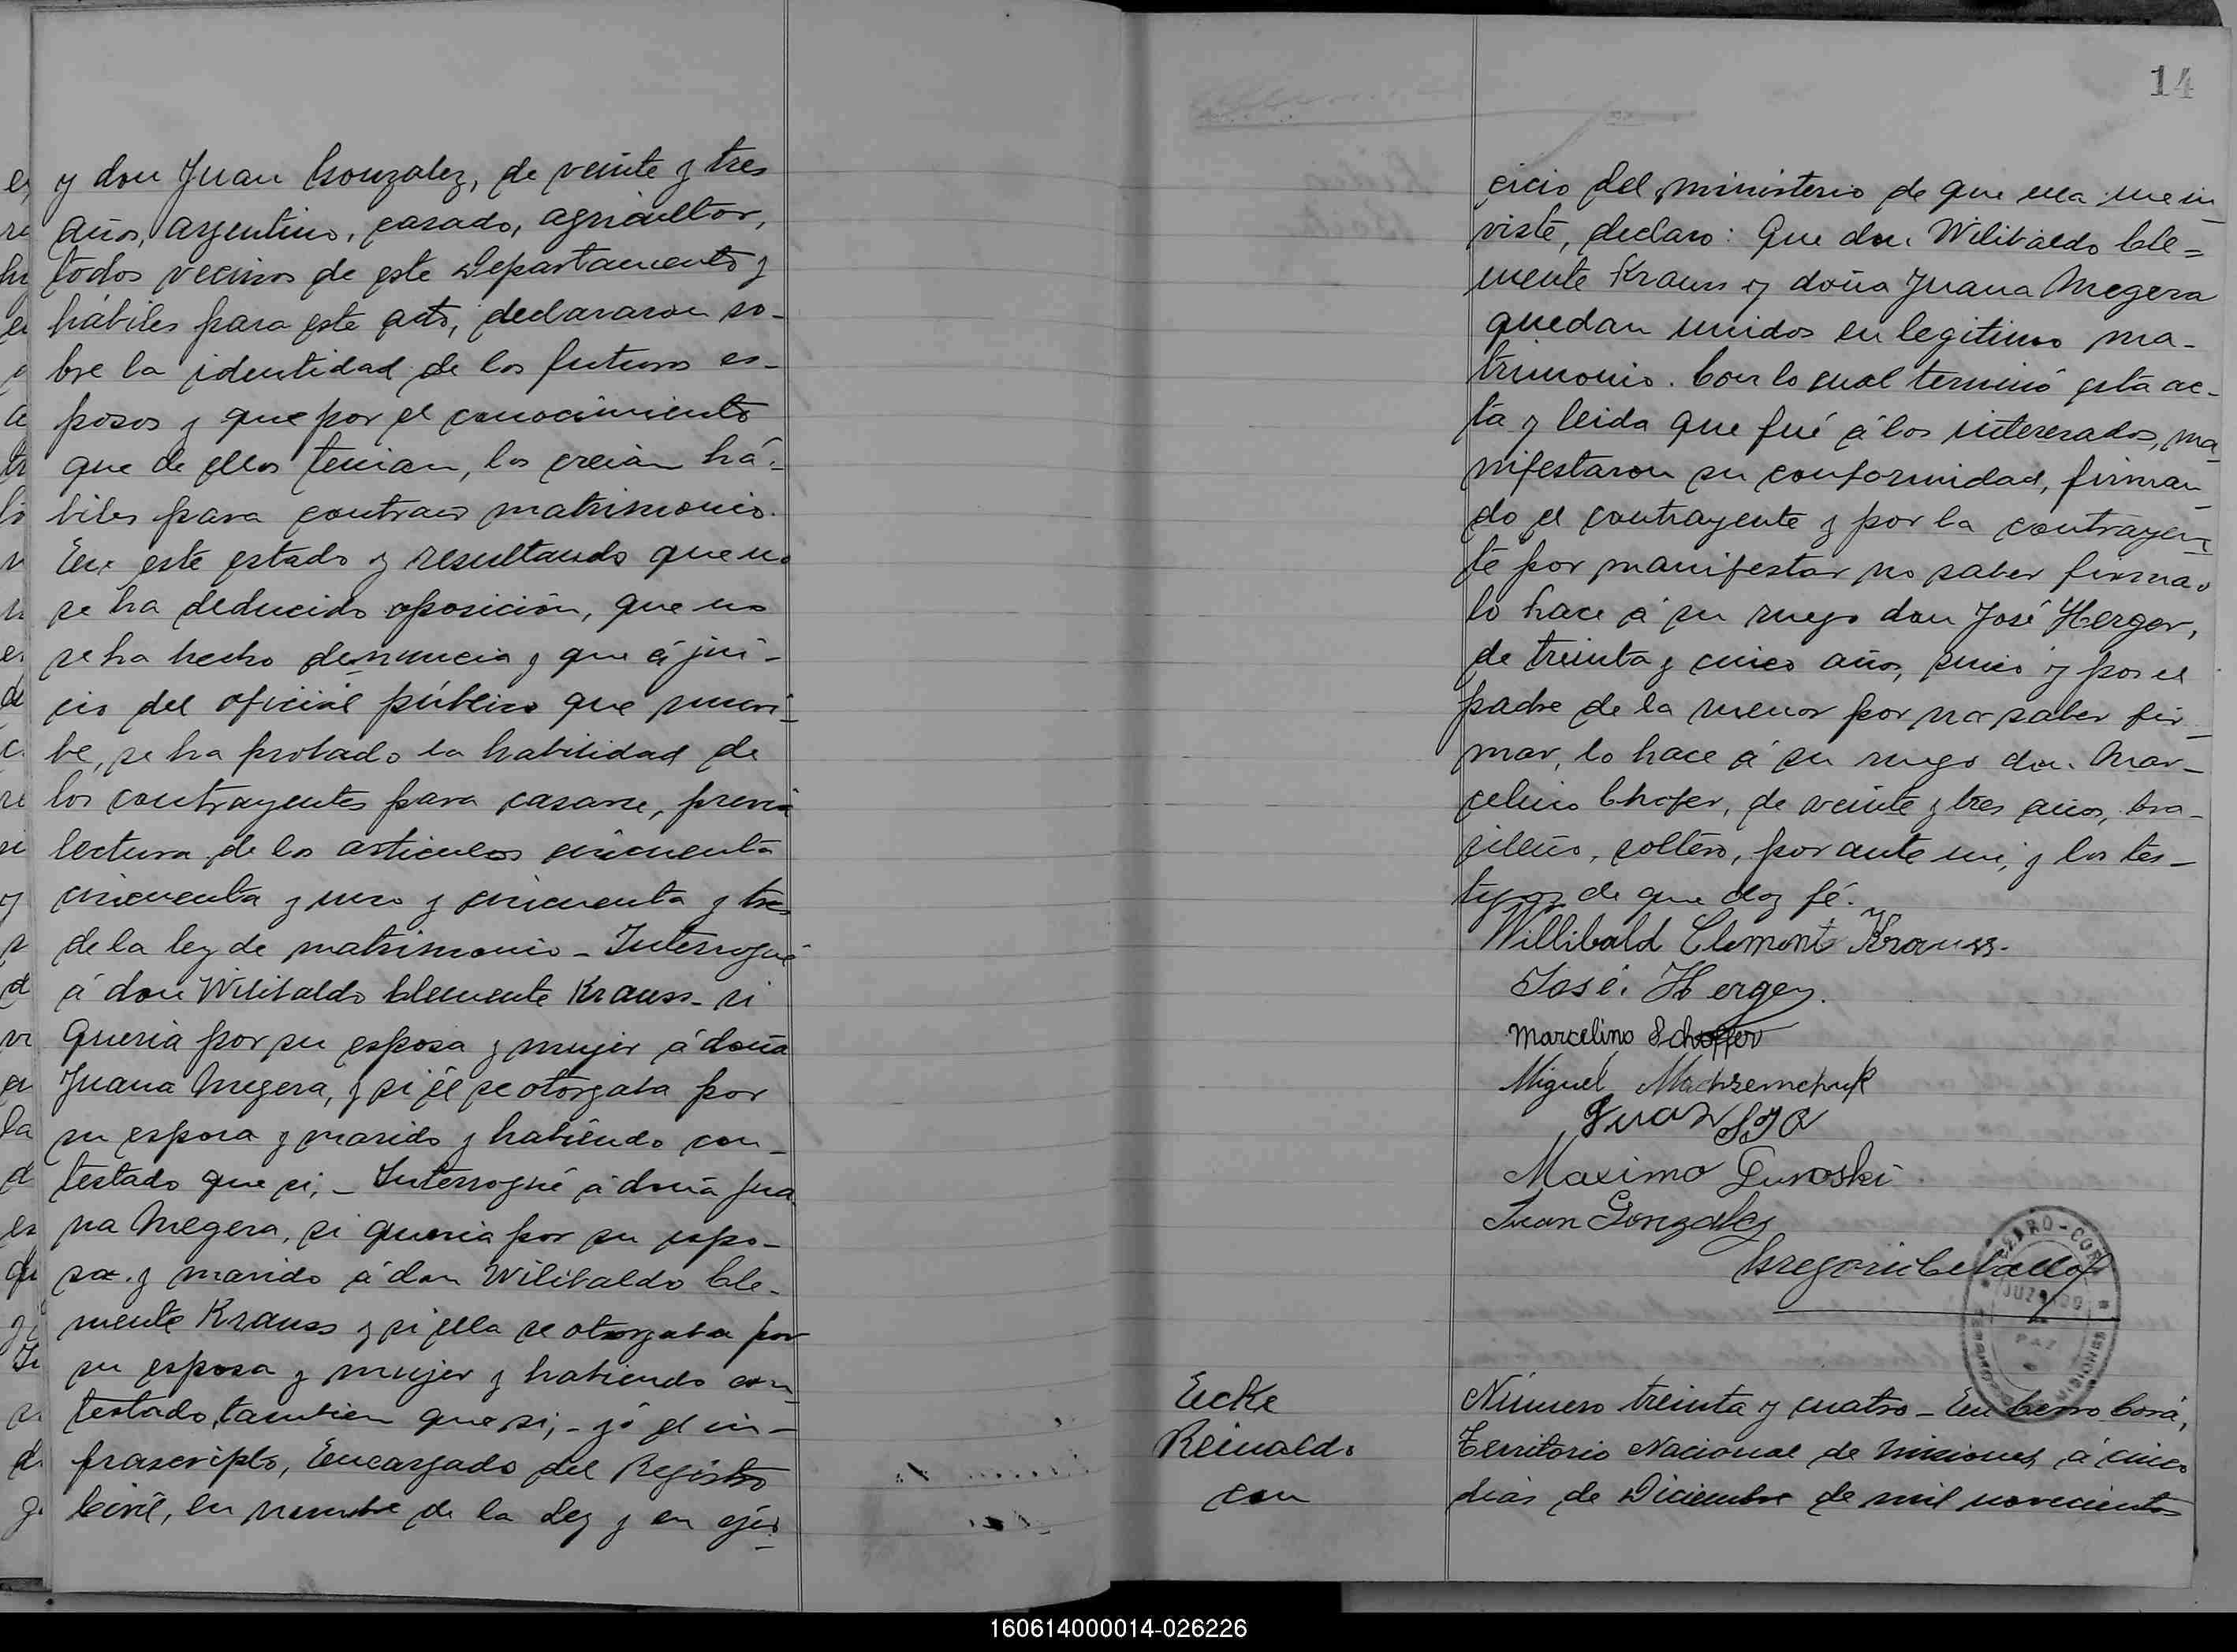 y don Juan Gonzalez, de veinte y tres
años, argentino, casado, agricultor,
todos vecinos de este Departamento y
hábiles para este acto, declararon so-
bre la identidad de los futuros es-
posos y que por el conocimiento
que de ellos tenian, los creian há-
biles para contraer matrimonio.
En este estado y resultando que no
se ha deducido oposición, que no
se ha hecho denuncia y que á jui-
cio del oficial público que suscri-
be, se ha probado la habilidad de
los contrayentes para casarse, previa
lectura de los articulos cincuenta
cincuenta y uno y cincuenta y tres
de la ley de matrimonio - Interrogué
á don Wilibaldo Clemente Krauss - si
queria por su esposa y mujer á doña
Juana Megera, y si él se otorgaba por
su esposo y marido y habiendo con-
testado que si, - Interrogué á doña Jua
na Megera, si queria por su espo-
so y marido á don Wilibaldo Cle-
mente Krauss y si ella se otorgaba por
su esposa y mujer y habiendo con-
testado, tambien que si, - yó el in-
frascripto, Encargado del Registro
Civil, en nombre de la Ley y en ejer
14
cicio del ministerio de que ella me in
viste, declaro: Que don Wilibaldo Cle=
mente Krauss y doña Juana Megera
quedan unidos en legitimo ma-
trimonio. Con lo cual terminó esta ac-
ta y leida que fué á los interesados, ma
nifestaron su conformidad, firman
do el contrayente y por la contrayen
te por manifestar no saber firmar
lo hace á su ruego don José Herger,
de treinta y cinco años, suizo y por el
padre de la menor por no saber fir
mar, lo hace á su ruego don Mar-
celino Chofer, de veinte y tres años, bra-
sileño, soltero, por ante mi, y los tes-
tigos de que doy fé.
Willibald Clement Krauss.
José. Herger.
Marcelino Schoffer
Miguel
Juan
Maximo
Juan Gonzalez
Gregorio Ceballos
CERRO-CORÁ
JUZGADO
DE
PAZ
MISIONES
Ecke
Reinaldo
con
Número treinta y cuatro - En Cerro Corá,
Territorio Nacional de Misiones, á cinco
dias de Diciembre de mil novecientos
160614000014-026226